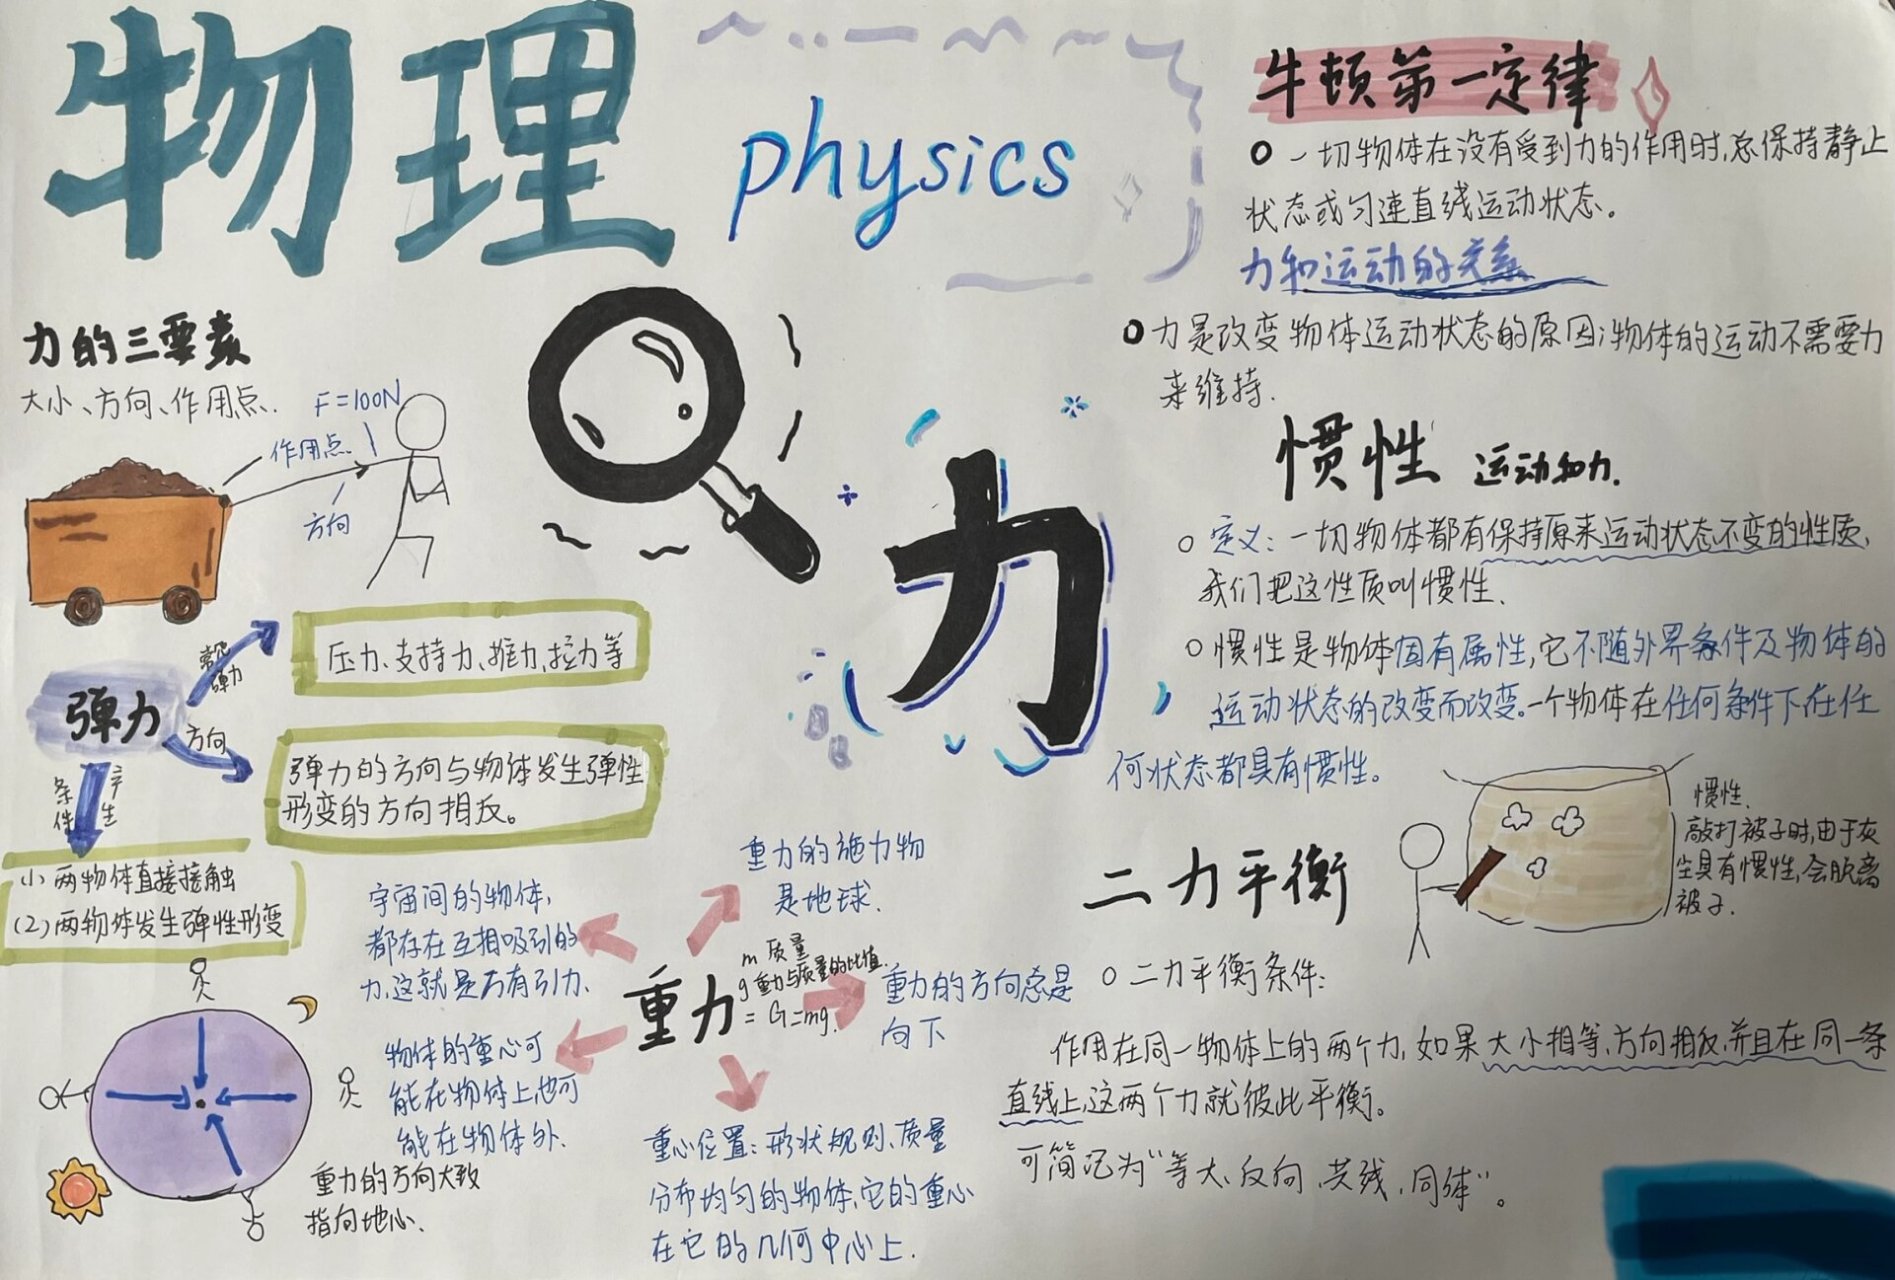 物理
physics
力的三要素
大小、方向、作用点.
F=100N
作用点
方向
弹力
常见
弹力
压力、支持力、推力、拉力等
方向
弹力的方向与物体发生弹性
形变的方向相反。
产生
条件
(1)两物体直接接触
(2)两物体发生弹性形变
重力的方向大致
指向地心.
力
重力
m 质量
g 重力与质量的比值.
= G=mg.
宇宙间的物体,
都存在互相吸引的
力,这就是万有引力.
重力的施力物
是地球.
重力的方向总是
向下
物体的重心可
能在物体上,也可
能在物体外.
重心位置:形状规则、质量
分布均匀的物体,它的重心
在它的几何中心上.
牛顿第一定律
一切物体在没有受到力的作用时,总保持静止
状态或匀速直线运动状态。
力和运动的关系
力是改变物体运动状态的原因;物体的运动不需要力
来维持.
惯性 运动和力.
定义:一切物体都有保持原来运动状态不变的性质,
我们把这性质叫惯性.
惯性是物体固有属性,它不随外界条件及物体的
运动状态的改变而改变.一个物体在任何条件下在任
何状态都具有惯性。
惯性.
敲打被子时,由于灰
尘具有惯性,会脱离
被子.
二力平衡
二力平衡条件:
作用在同一物体上的两个力,如果大小相等、方向相反,并且在同一条
直线上,这两个力就彼此平衡。
可简记为“等大、反向、共线、同体”。